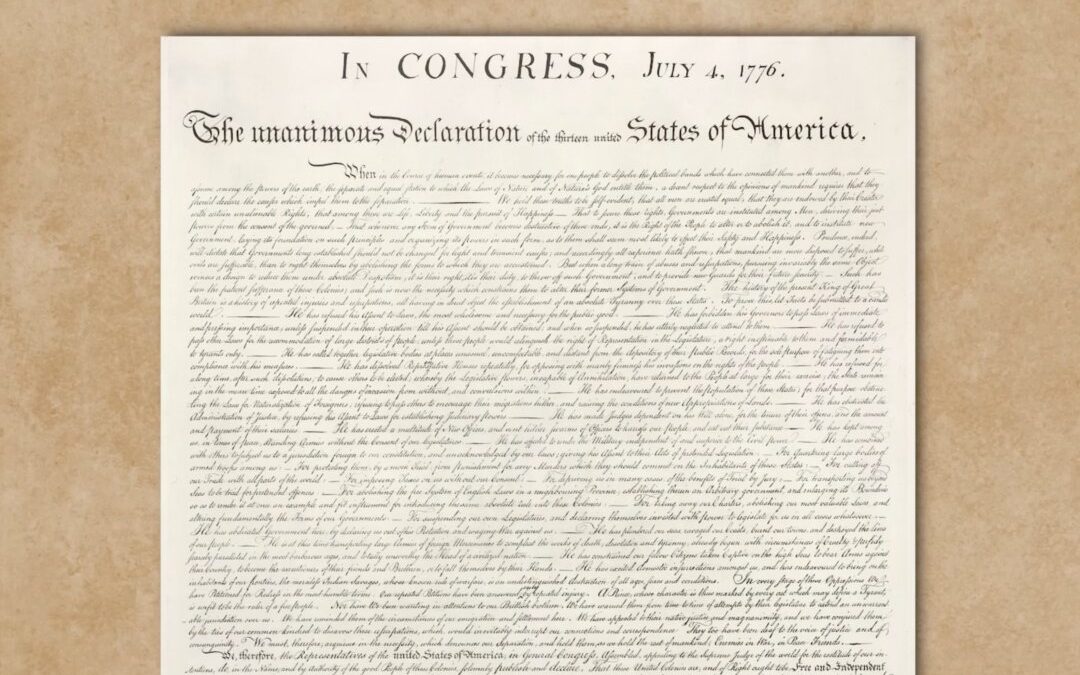 IN CONGRESS, JULY 4, 1776.
The unanimous Declaration of the thirteen united States of America,
When in the Course of human events, it becomes necessary for one people to dissolve the political bands which have connected them with another, and to
assume among the powers of the earth, the separate and equal station to which the Laws of Nature and of Nature's God entitle them, a decent respect to the opinions of mankind requires that they
should declare the causes which impel them to the separation. ——— We hold these truths to be self-evident, that all men are created equal, that they are endowed by their Creator
with certain unalienable Rights, that among these are Life, Liberty and the pursuit of Happiness.— That to secure these rights, Governments are instituted among Men, deriving their just
powers from the consent of the governed,— That whenever any Form of Government becomes destructive of these ends, it is the Right of the People to alter or to abolish it, and to institute new
Government, laying its foundation on such principles and organizing its powers in such form, as to them shall seem most likely to effect their Safety and Happiness. Prudence, indeed,
will dictate that Governments long established should not be changed for light and transient causes; and accordingly all experience hath shewn, that mankind are more disposed to suffer, while
evils are sufferable, than to right themselves by abolishing the forms to which they are accustomed. But when a long train of abuses and usurpations, pursuing invariably the same Object
evinces a design to reduce them under absolute Despotism, it is their right, it is their duty, to throw off such Government, and to provide new Guards for their future security.— Such has
been the patient sufferance of these Colonies; and such is now the necessity which constrains them to alter their former Systems of Government. The history of the present King of Great
Britain is a history of repeated injuries and usurpations, all having in direct object the establishment of an absolute Tyranny over these States. To prove this, let Facts be submitted to a candid
world. ——— He has refused his Assent to Laws, the most wholesome and necessary for the public good. ——— He has forbidden his Governors to pass Laws of immediate
and pressing importance, unless suspended in their operation till his Assent should be obtained; and when so suspended, he has utterly neglected to attend to them. ——— He has refused to
pass other Laws for the accommodation of large districts of people, unless those people would relinquish the right of Representation in the Legislature, a right inestimable to them and formidable
to tyrants only. ——— He has called together legislative bodies at places unusual, uncomfortable, and distant from the depository of their public Records, for the sole purpose of fatiguing them into
compliance with his measures. ——— He has dissolved Representative Houses repeatedly, for opposing with manly firmness his invasions on the rights of the people. ——— He has refused for
a long time, after such dissolutions, to cause others to be elected; whereby the Legislative powers, incapable of Annihilation, have returned to the People at large for their exercise; the State remain-
ing in the mean time exposed to all the dangers of invasion from without, and convulsions within. ——— He has endeavoured to prevent the population of these States; for that purpose obstruc-
ting the Laws for Naturalization of Foreigners; refusing to pass others to encourage their migrations hither, and raising the conditions of new Appropriations of Lands. ——— He has obstructed the
Administration of Justice, by refusing his Assent to Laws for establishing Judiciary powers. ——— He has made Judges dependent on his Will alone, for the tenure of their offices, and the amount
and payment of their salaries. ——— He has erected a multitude of New Offices, and sent hither swarms of Officers to harrass our people, and eat out their substance. ——— He has kept among
us, in times of peace, Standing Armies without the Consent of our legislatures. ——— He has affected to render the Military independent of and superior to the Civil power. ——— He has combined
with others to subject us to a jurisdiction foreign to our constitution, and unacknowledged by our laws; giving his Assent to their Acts of pretended Legislation: — For Quartering large bodies of
armed troops among us: — For protecting them, by a mock Trial, from punishment for any Murders which they should commit on the Inhabitants of these States: — For cutting off
our Trade with all parts of the world: — For imposing Taxes on us without our Consent: — For depriving us in many cases, of the benefits of Trial by Jury: — For transporting us beyond
Seas to be tried for pretended offences — For abolishing the free System of English Laws in a neighbouring Province, establishing therein an Arbitrary government, and enlarging its Boundaries
so as to render it at once an example and fit instrument for introducing the same absolute rule into these Colonies: — For taking away our Charters, abolishing our most valuable Laws, and
altering fundamentally the Forms of our Governments: — For suspending our own Legislatures, and declaring themselves invested with power to legislate for us in all cases whatsoever. —
He has abdicated Government here, by declaring us out of his Protection and waging War against us. — He has plundered our seas, ravaged our Coasts, burnt our towns, and destroyed the lives
of our people. — He is at this time transporting large Armies of foreign Mercenaries to compleat the works of death, desolation and tyranny, already begun with circumstances of Cruelty & perfidy
scarcely paralleled in the most barbarous ages, and totally unworthy the Head of a civilized nation. — He has constrained our fellow Citizens taken Captive on the high Seas to bear Arms against
their Country, to become the executioners of their friends and Brethren, or to fall themselves by their Hands. — He has excited domestic insurrections amongst us, and has endeavoured to bring on the
inhabitants of our frontiers, the merciless Indian Savages, whose known rule of warfare, is an undistinguished destruction of all ages, sexes and conditions. In every stage of these Oppressions We
have Petitioned for Redress in the most humble terms: Our repeated Petitions have been answered only by repeated injury. A Prince, whose character is thus marked by every act which may define a Tyrant,
is unfit to be the ruler of a free people. Nor have We been wanting in attentions to our Brittish brethren. We have warned them from time to time of attempts by their legislature to extend an unwarrant-
able jurisdiction over us. We have reminded them of the circumstances of our emigration and settlement here. We have appealed to their native justice and magnanimity, and we have conjured them
by the ties of our common kindred to disavow these usurpations, which, would inevitably interrupt our connections and correspondence. They too have been deaf to the voice of justice and of
consanguinity. We must, therefore, acquiesce in the necessity, which denounces our Separation, and hold them, as we hold the rest of mankind, Enemies in War, in Peace Friends. ———
We, therefore, the Representatives of the united States of America, in General Congress, Assembled, appealing to the Supreme Judge of the world for the rectitude of our in-
tentions, do, in the Name, and by Authority of the good People of these Colonies, solemnly publish and declare, That these United Colonies are, and of Right ought to be Free and Independent